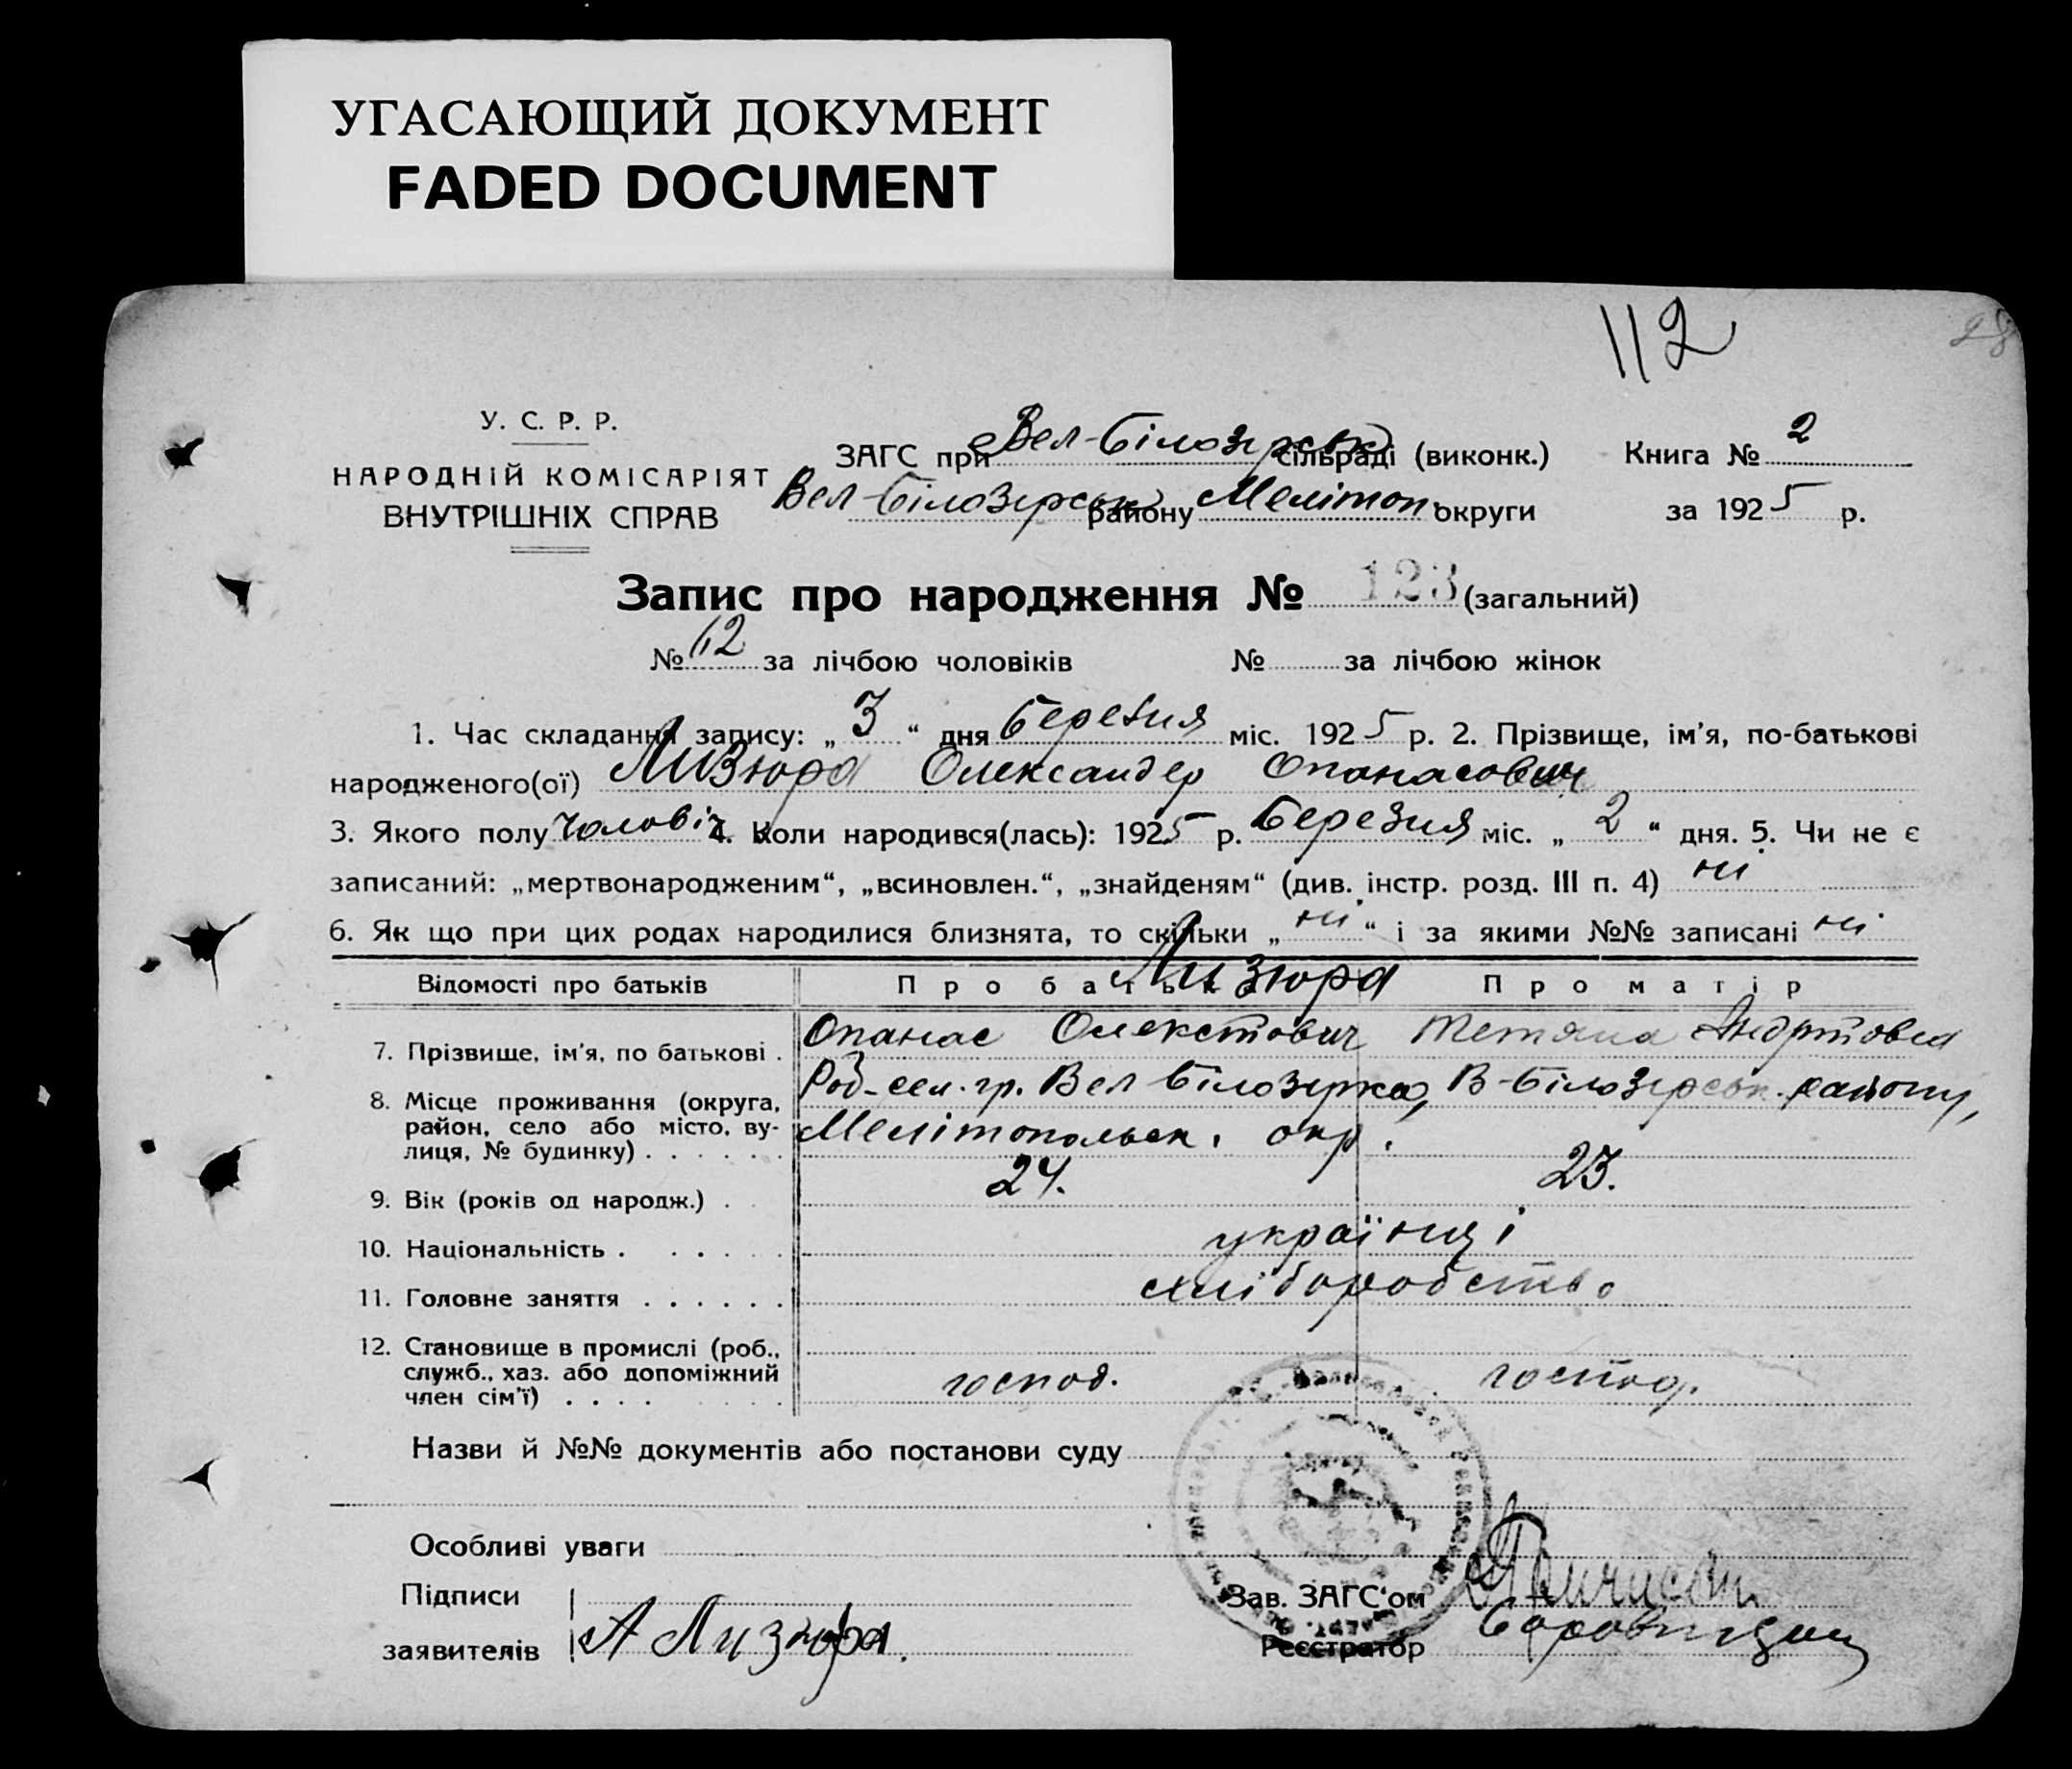 УГАСАЮЩИЙ ДОКУМЕНТ
FADED DOCUMENT
112
28
У. С. Р. Р.
НАРОДНІЙ КОМІСАРІЯТ
ВНУТРІШНІХ СПРАВ
ЗАГС при Вел-Білозірськ сільраді (виконк.)
Вел-Білозерськ району Мелітоп. округи
Книга № 2
за 1925 р.
Запис про народження № 123 (загальний)
№ 62 за лічбою чоловіків № за лічбою жінок
1. Час складання запису: „ 3 “ дня березня міс. 1925 р. 2. Прізвище, ім'я, по-батькові
народженого(ої) Лизюра Олександер Опанасович
3. Якого полу чоловіч 4. Коли народився(лась): 1925 р. березня міс. „ 2 “ дня. 5. Чи не є
записаний: „мертвонародженим“, „всиновлен.“, „знайденям“ (див. інстр. розд. III п. 4) ні
6. Як що при цих родах народилися близнята, то скільки „ ні “ і за якими №№ записані ні
Відомості про батьків Про батька Лизюра Про матір
7. Прізвище, ім'я, по батькові . Опанас Олекстович Тетяна
8. Місце проживання (округа, район, село або місто, вулиця, № будинку) . . . . . . Вел Білозірка, В-Білозірськ. району,
Мелітопольск. окр.
9. Вік (років од народж.) . 24. 23.
10. Національність . . . . . . українці
11. Головне заняття . . . . . . хліборобство
12. Становище в промислі (роб.,
служб., хаз. або допоміжний
член сім'ї) . . . . господ. господ.
Назви й №№ документів або постанови суду
Особливі уваги
Підписи
заявителів А Лизюра.
Зав. ЗАГС'ом
Реєстратор